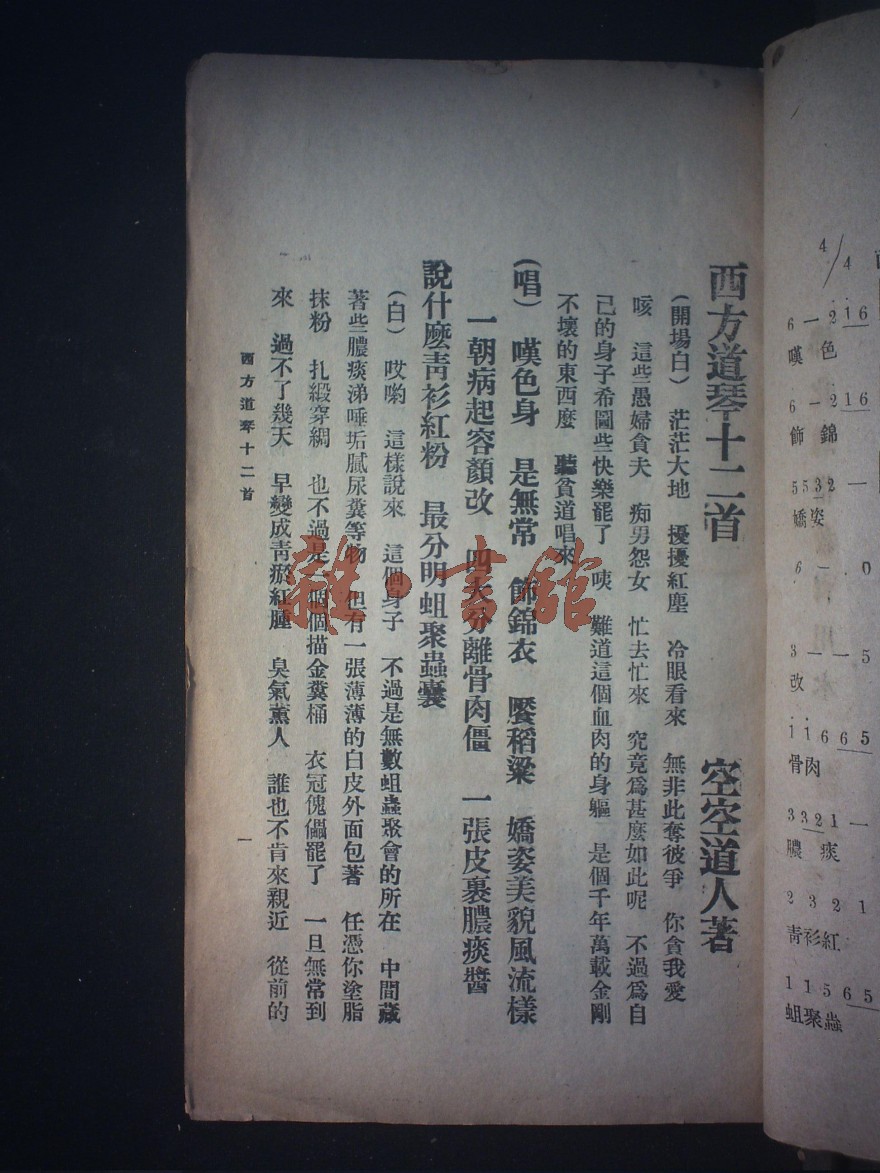 西方道琴十二首　空空道人著
(開場白) 茫茫大地 擾擾紅塵 冷眼看來 無非此奪彼爭 你貪我愛
咳 這些愚婦貪夫 痴男怨女 忙去忙來 究竟爲甚麼如此呢 不過爲自
己的身子希圖些快樂罷了 咦 難道這個血肉的身軀 是個千年萬載金剛
不壞的東西麼 聽貧道唱來
(唱) 嘆色身 是無常 飾錦衣 饜稻粱 嬌姿美貌風流樣
一朝病起容顏改 四大分離骨肉僵 一張皮裹膿痰醬
說什麼靑衫紅粉 最分明蛆聚蟲囊
(白) 哎喲 這樣說來 這個身子 不過是無數蛆蟲聚會的所在 中間藏
著些膿痰涕唾垢膩尿糞等物 但有一張薄薄的白皮外面包著 任憑你塗脂
抹粉 扎緞穿綢 也不過是一個個描金糞桶 衣冠傀儡罷了 一旦無常到
來 過不了幾天 早變成靑瘀紅腫 臭氣薰人 誰也不肯來親近 從前的
西方道琴十二首
一
雜·書館
4/4
6 — 2 1 6
嘆 色
6 — 2 1 6
飾 錦
5 5 3 2 —
嬌姿
6 — 0
3 — — 5
改
1 1 6 6 5
骨肉
3 3 2 1 —
膿 痰
2 3 2 1
靑衫紅
1 1 5 6 5
蛆聚蟲